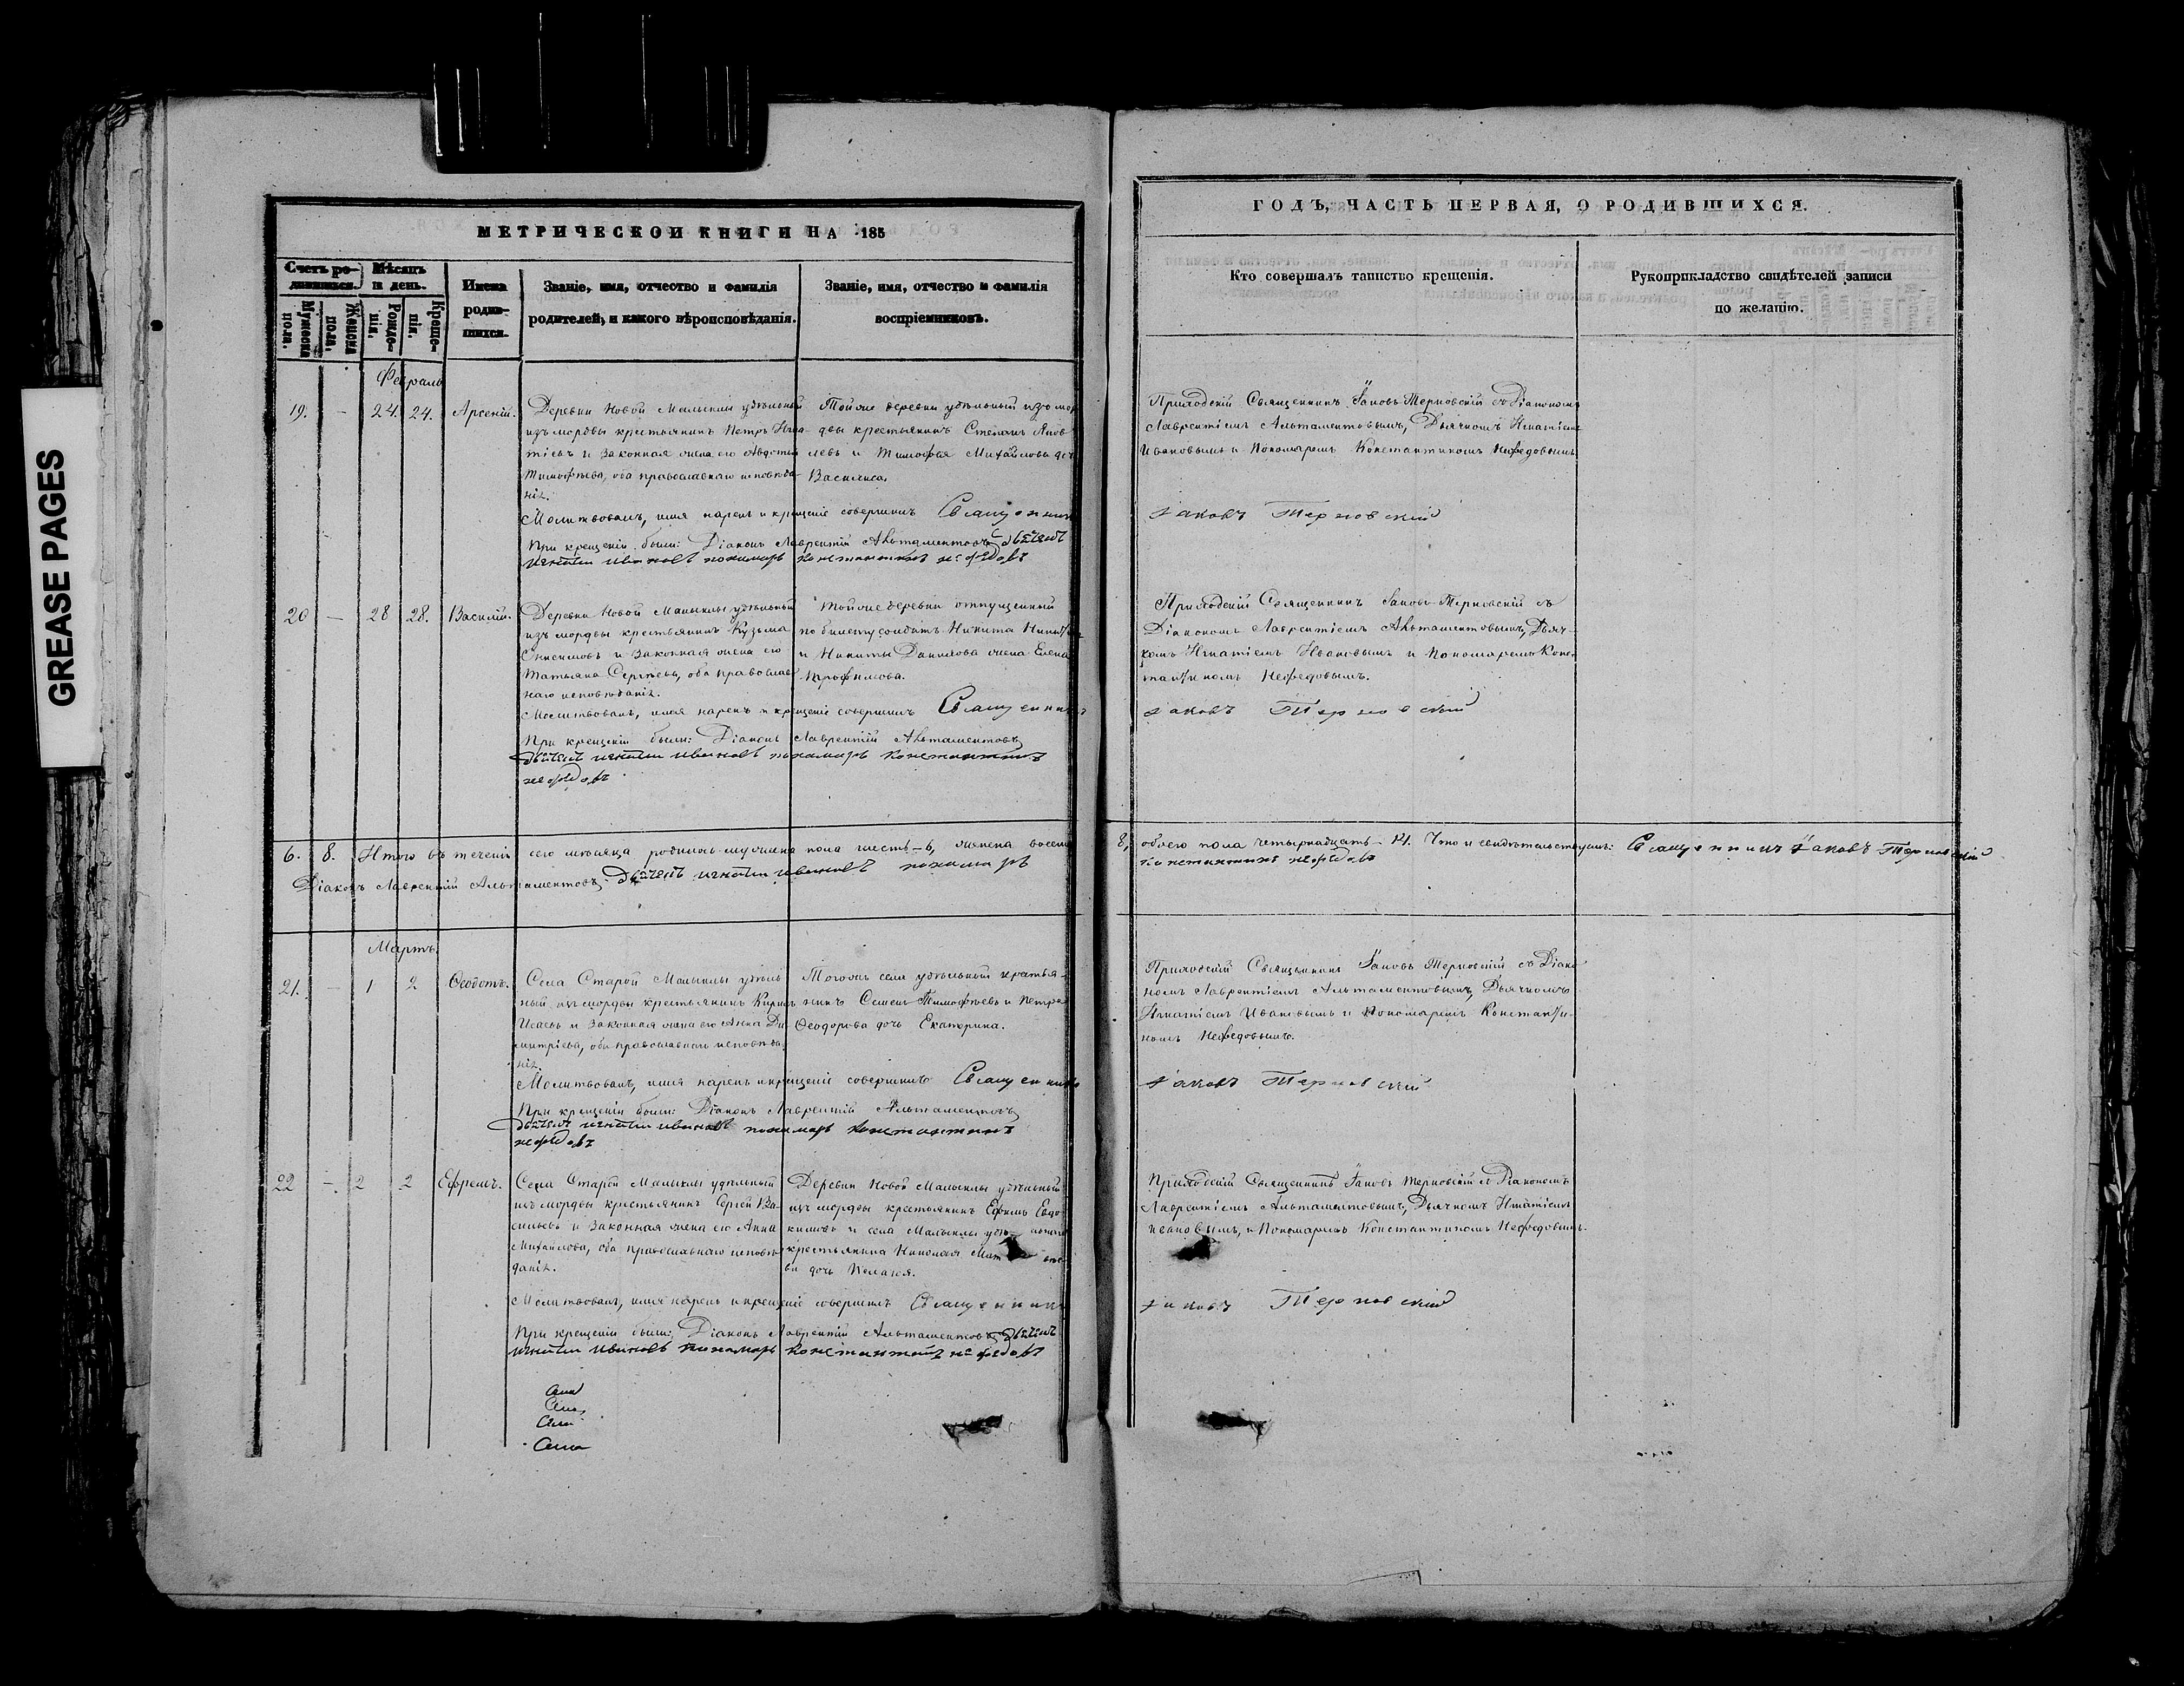 GREASE PAGES
МЕТРИЧЕСКОЙ КНИГИ НА 185
Счетъ ро-
дившихся.
Мѣсяцъ
и день.
Мужеска
пола.
Женска
пола.
Рожде-
нія.
Креще-
нія.
Имена
родив-
шихся.
Званіе, имя, отчество и фамилія
родителей, и какого вѣроисповѣданія.
Званіе, имя, отчество и фамилія
воспріемниковъ.
Февраль
19. — 24. 24. Арсеній.
Деревни Новой Малыклы удѣльный
изъ мордвы крестьянинъ Петръ Игна-
тіевъ и законная жена его Авдотья
Тимофѣева, оба православнаго исповѣда-
нія.
Тойже деревни удѣльный изъ мор
двы крестьянинъ Степанъ Яков
левъ и Тимофея Михайлова дочь
Василиса.
Молитвовалъ, имя нарекъ и крещеніе совершилъ Священникъ
При крещеніи были: Діаконъ Лаврентій Альтаментовъ, дьячекъ
игнатій ивановъ пономарь константинъ нефедовъ
20 — 28 28. Василій.
Деревни Новой Малыклы удѣльный
изъ мордвы крестьянинъ Кузьма
Онисимовъ и законная жена его
Татьяна Сергѣева, оба православ-
наго исповѣданія.
Тойже деревни отпущенный
по билету солдатъ Никита
и Никиты Данилова жена Елена
Трофимова.
Молитвовалъ, имя нарекъ и крещеніе совершилъ Священникъ
При крещеніи были: Діаконъ Лаврентій Альтаментовъ,
дьячекъ игнатій ивановъ пономарь константинъ
нефедовъ
6. 8. Итого въ теченіи сего мѣсяца родилось мужеска пола шесть — 6, женска восемь
Діаконъ Лаврентій Альтаментовъ, дьячекъ игнатій ивановъ пономарь
Мартъ.
21. — 1 2 Ѳеодотъ.
Села Старой Малыклы удѣль
ный изъ мордвы крестьянинъ Кирилъ
Исаевъ и законная жена его Анна Ди
митріева, оба православнаго исповѣда
нія.
Тогожъ села удѣльный крестья-
нинъ Семенъ Тимофѣевъ и Петра
Ѳеодорова дочь Екатерина.
Молитвовалъ, имя нарекъ и крещеніе совершилъ Священникъ
При крещеніи были: Діаконъ Лаврентій Альтаментовъ,
дьячекъ игнатій ивановъ пономарь константинъ
нефедовъ
22 — 2 2 Ефремъ.
Села Старой Малыклы удѣльный
изъ мордвы крестьянинъ Сергей Ва-
сильевъ и законная жена его Анна
Михайлова, оба православнаго исповѣ-
данія.
Деревни Новой Малыклы удѣльный
изъ мордвы крестьянинъ Ефимъ Евдо-
кимовъ и села Малыклы
крестьянина Николая
ва дочь Пелагея.
Молитвовалъ, имя нарекъ и крещеніе совершилъ Священникъ
При крещеніи были: Діаконъ Лаврентій Альтаментовъ, дьячекъ
игнатій ивановъ пономарь константинъ нефедовъ
ГОДЪ, ЧАСТЬ ПЕРВАЯ, О РОДИВШИХСЯ.
Кто совершалъ таинство крещенія.
Рукоприкладство свидѣтелей записи
по желанію.
Приходскій Священникъ Іаковъ Терновскій съ Діакономъ
Лаврентіемъ Альтаментовымъ, Дьячкомъ Игнатіемъ
Ивановымъ и Пономаремъ Константиномъ Нефедовымъ.
Іаковъ Терновскій
Приходскій Священникъ Іаковъ Терновскій съ
Діакономъ Лаврентіемъ Альтаментовымъ, Дьяч-
комъ Игнатіемъ Ивановымъ и Пономаремъ Конс
тантиномъ Нефедовымъ.
Іаковъ Терновскій
8, обоего пола четырнадцать — 14. Что и свидѣтельствуемъ: Священникъ Іаковъ Терновскій
константинъ нефедовъ
Приходскій Священникъ Іаковъ Терновскій съ Діако
номъ Лаврентіемъ Альтаментовымъ, Дьячкомъ
Игнатіемъ Ивановымъ и Пономаремъ Константи-
номъ Нефедовымъ.
Іаковъ Терновскій
Приходскій Священникъ Іаковъ Терновскій съ Діакономъ
Лаврентіемъ Альтаментовымъ, Дьячкомъ Игнатіемъ
Ивановымъ, и Пономаремъ Константиномъ Нефедовымъ.
Іаковъ Терновскій